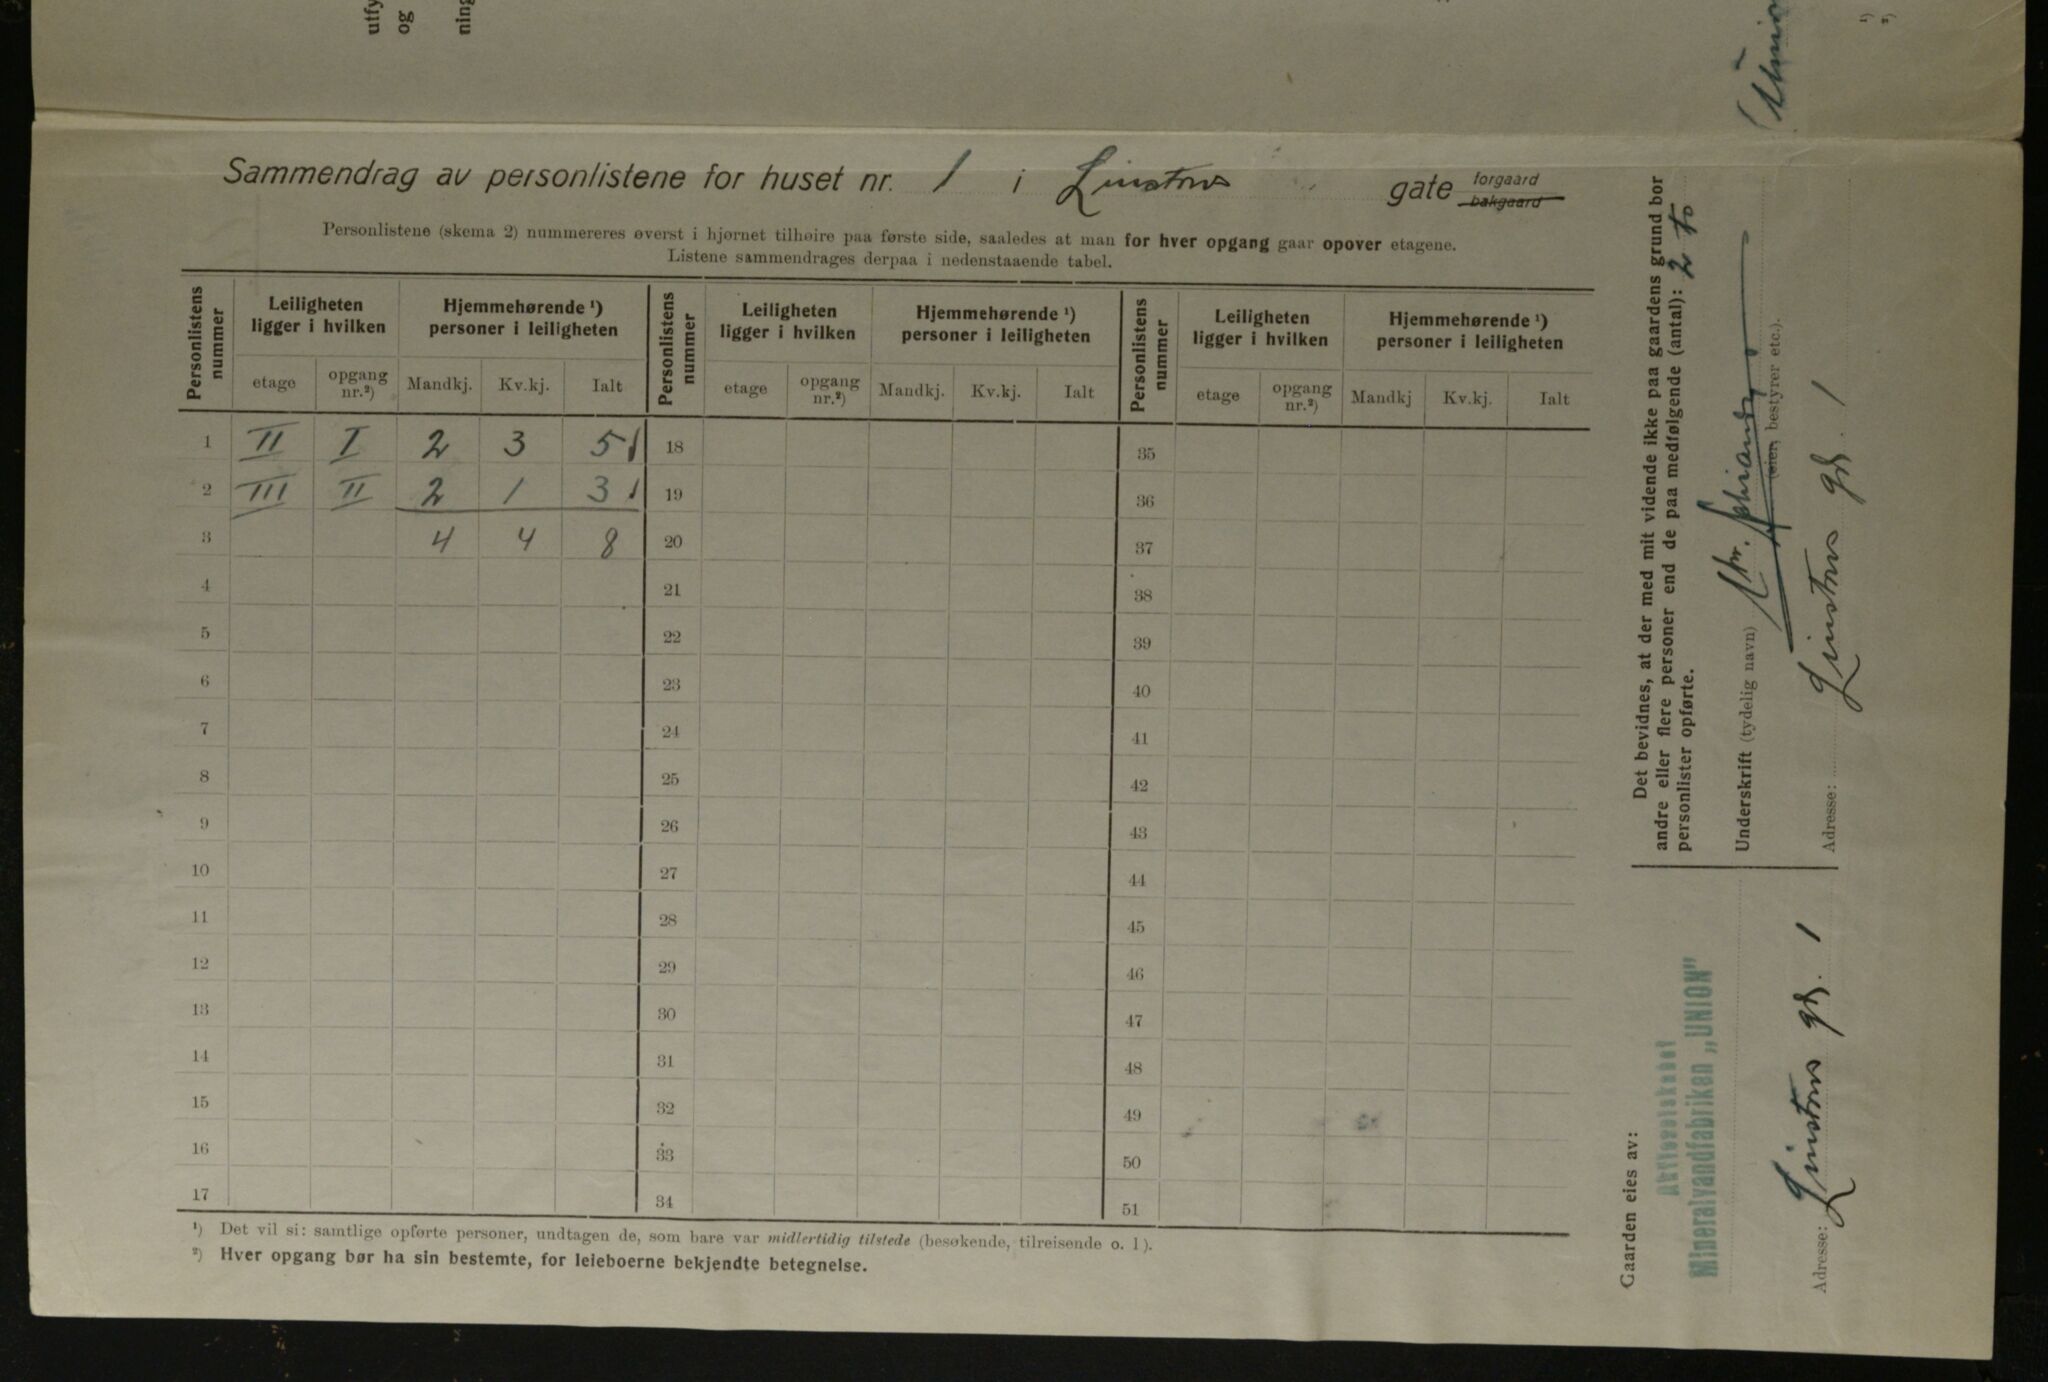 utfy
og
ning
Sammendrag av personlistene for huset nr. 1 i Linstows gate forgaard
bakgaard
Personlistene (skema 2) nummereres øverst i hjørnet tilhøire paa første side, saaledes at man for hver opgang gaar opover etagene.
Listene sammendrages derpaa i nedenstaaende tabel.
Personlistens nummer | Leiligheten ligger i hvilken | Hjemmehørende ¹) personer i leiligheten | Personlistens nummer | Leiligheten ligger i hvilken | Hjemmehørende ¹) personer i leiligheten | Personlistens nummer | Leiligheten ligger i hvilken | Hjemmehørende ¹) personer i leiligheten
etage | opgang nr.²) | Mandkj. | Kv.kj. | Ialt | etage | opgang nr.²) | Mandkj. | Kv.kj. | Ialt | etage | opgang nr.²) | Mandkj | Kv.kj. | Ialt
1 II I 2 3 5 18 35
2 III II 2 1 3 19 36
3 4 4 8 20 37
4 21 38
5 22 39
6 23 40
7 24 41
8 25 42
9 26 43
10 27 44
11 28 45
12 29 46
13 30 47
14 31 48
15 32 49
16 33 50
17 34 51
¹) Det vil si: samtlige opførte personer, undtagen de, som bare var midlertidig tilstede (besøkende, tilreisende o. l).
²) Hver opgang bør ha sin bestemte, for leieboerne bekjendte betegnelse.
Det bevidnes, at der med mit vidende ikke paa gaardens grund bor
andre eller flere personer end de paa medfølgende (antal): 2 to
personlister opførte.
Underskrift (tydelig navn) Chr.
(eier, bestyrer etc.).
Adresse: Linstows gd. 1
Gaarden eies av:
Aktieselskabet
Mineralvandfabriken „UNION"
Adresse: Linstows gd. 1
¹)
²)